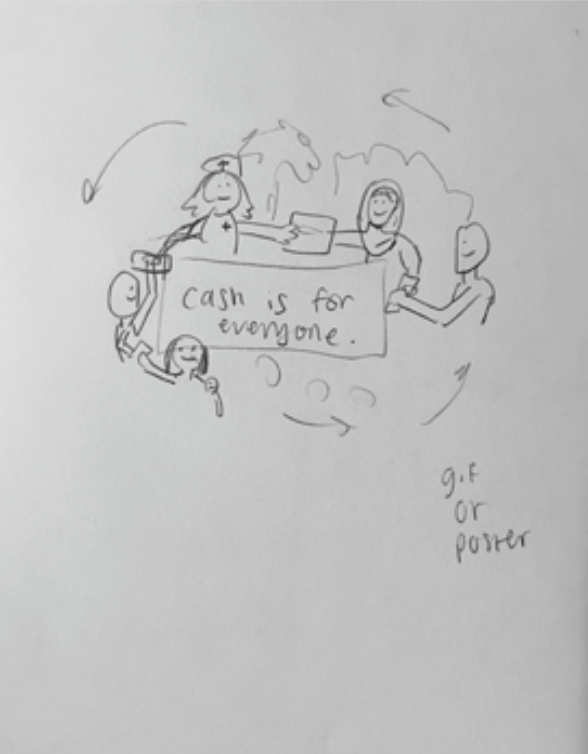 cash is for
everyone.
gif
or
poster